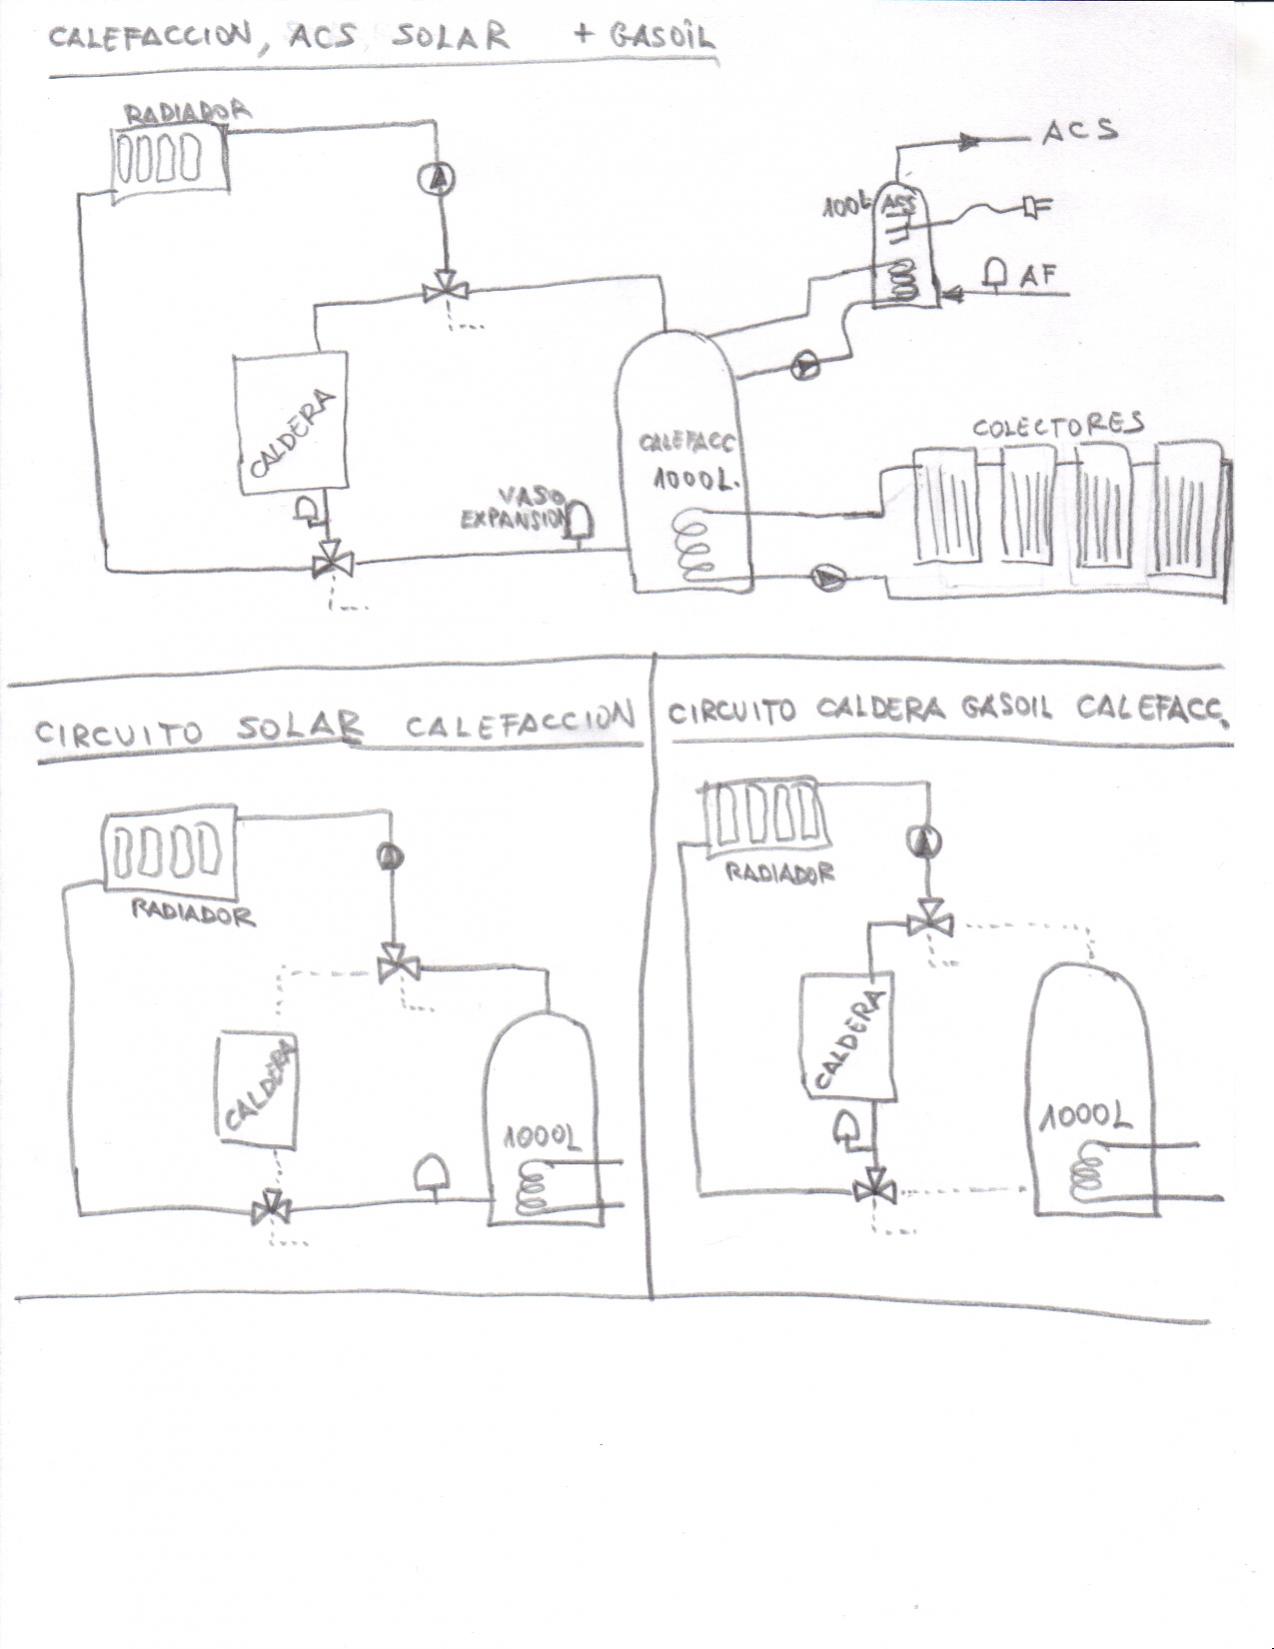 CALEFACCION, ACS SOLAR + GASOIL
RADIADOR
ACS
100L
ACS
AF
CALDERA
CALEFACC
1000L.
VASO
EXPANSION
COLECTORES
CIRCUITO SOLAR CALEFACCION
RADIADOR
CALDERA
1000L
CIRCUITO CALDERA GASOIL CALEFACC.
RADIADOR
CALDERA
1000L